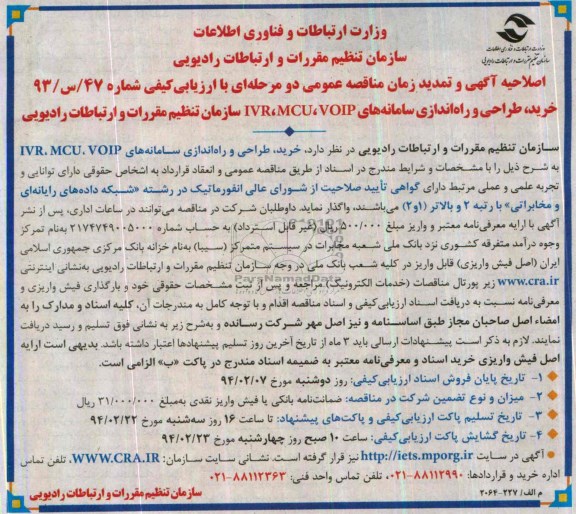 وزارت ارتباطات و فناوری اطلاعات
سازمان تنظیم مقررات و ارتباطات رادیویی
وزارت ارتباطات و فناوری اطلاعات
سازمان تنظیم مقررات و ارتباطات رادیویی
اصلاحیه آگهی و تمدید زمان مناقصه عمومی دو مرحله‌ای با ارزیابی‌کیفی شماره ۴۷/س/۹۳
خرید، طراحی و راه‌اندازی سامانه‌های IVR،MCU،VOIP سازمان تنظیم مقررات و ارتباطات رادیویی
سازمان تنظیم مقررات و ارتباطات رادیویی در نظر دارد، خرید، طراحی و راه‌اندازی سـامانه‌های IVR، MCU، VOIP
به شرح ذیل را با مشخصات و شرایط مندرج در اسناد از طریق مناقصه عمومی و انعقاد قرارداد به اشخاص حقوقی دارای توانایی و
تجربه علمی و عملی مرتبط دارای گواهی تأیید صلاحیت از شورای عالی انفورماتیک در رشته «شبکه داده‌های رایانه‌ای
و مخابراتی» با رتبه ۲ و بالاتر (۱و۲) می‌باشند، واگذار نماید داوطلبان شرکت در مناقصه می‌توانند در ساعات اداری، پس از نشر
آگهی با ارایه معرفی‌نامه معتبر و واریز مبلغ ۵۰۰/۰۰۰ریال(غیر قابل استرداد) به حساب شماره ۲۱۷۴۷۴۹۰۰۵۰۰۰ به‌نام تمرکز
وجوه درآمد متفرقه کشوری نزد بانک ملی شعبه مخابرات در سیستم متمرکز (سیبا) به‌نام خزانه بانک مرکزی جمهوری اسلامی
ایران (اصل فیش واریزی) قابل واریز در کلیه شعب بانک ملی در وجه سازمان تنظیم مقررات و ارتباطات رادیویی به‌نشانی اینترنتی
www.cra.ir زیر پورتال مناقصات (خدمات الکترونیک) مراجعه و پس از ثبت مشخصات حقوقی خود و بارگذاری فیش واریزی و
معرفی‌نامه نسبت به دریافت اسناد ارزیابی‌کیفی و اسناد مناقصه اقدام و با توجه کامل به مندرجات آن، کلیه اسناد و مدارک را به
امضاء اصل صاحبان مجاز طبق اساسـنامه و نیز اصل مهر شـرکت رسـانده و به‌شرح زیر به نشانی فوق تسلیم و رسید دریافت
نمایند. لازم به ذکر است پیشنهادات ارسالی باید ۳ ماه از تاریخ آخرین روز تسلیم پیشنهادها اعتبار داشته باشد. بدیهی است ارایه
اصل فیش واریزی خرید اسناد و معرفی‌نامه معتبر به ضمیمه اسناد مندرج در پاکت «ب» الزامی است.
۱- تاریخ پایان فروش اسناد ارزیابی‌کیفی: روز دوشنبه مورخ ۹۴/۰۲/۰۷
۲- میزان و نوع تضمین شرکت در مناقصه: ضمانت‌نامه بانکی یا فیش واریز نقدی به‌مبلغ ۳۱/۰۰۰/۰۰۰ ریال
۳- تاریخ تسلیم پاکت ارزیابی‌کیفی و پاکت‌های پیشنهاد: تا ساعت ۱۶ روز سه‌شنبه مورخ ۹۴/۰۲/۲۲
۴- تاریخ گشایش پاکت ارزیابی‌کیفی: ساعت ۱۰ صبح روز چهارشنبه مورخ ۹۴/۰۲/۲۳
آگهی در سایت http://iets.mporg.ir نیز قرار گرفته است. نشانی سایت سازمان: WWW.CRA.IR، تلفن تماس
اداره خرید و قراردادها: ۸۸۱۱۲۹۹۰-۰۲۱، تلفن تماس واحد فنی: ۸۸۱۱۲۳۶۳-۰۲۱
م الف/ ۲۲۷-۲۰۶۴
سازمان تنظیم مقررات و ارتباطات رادیویی
ParsNamadData